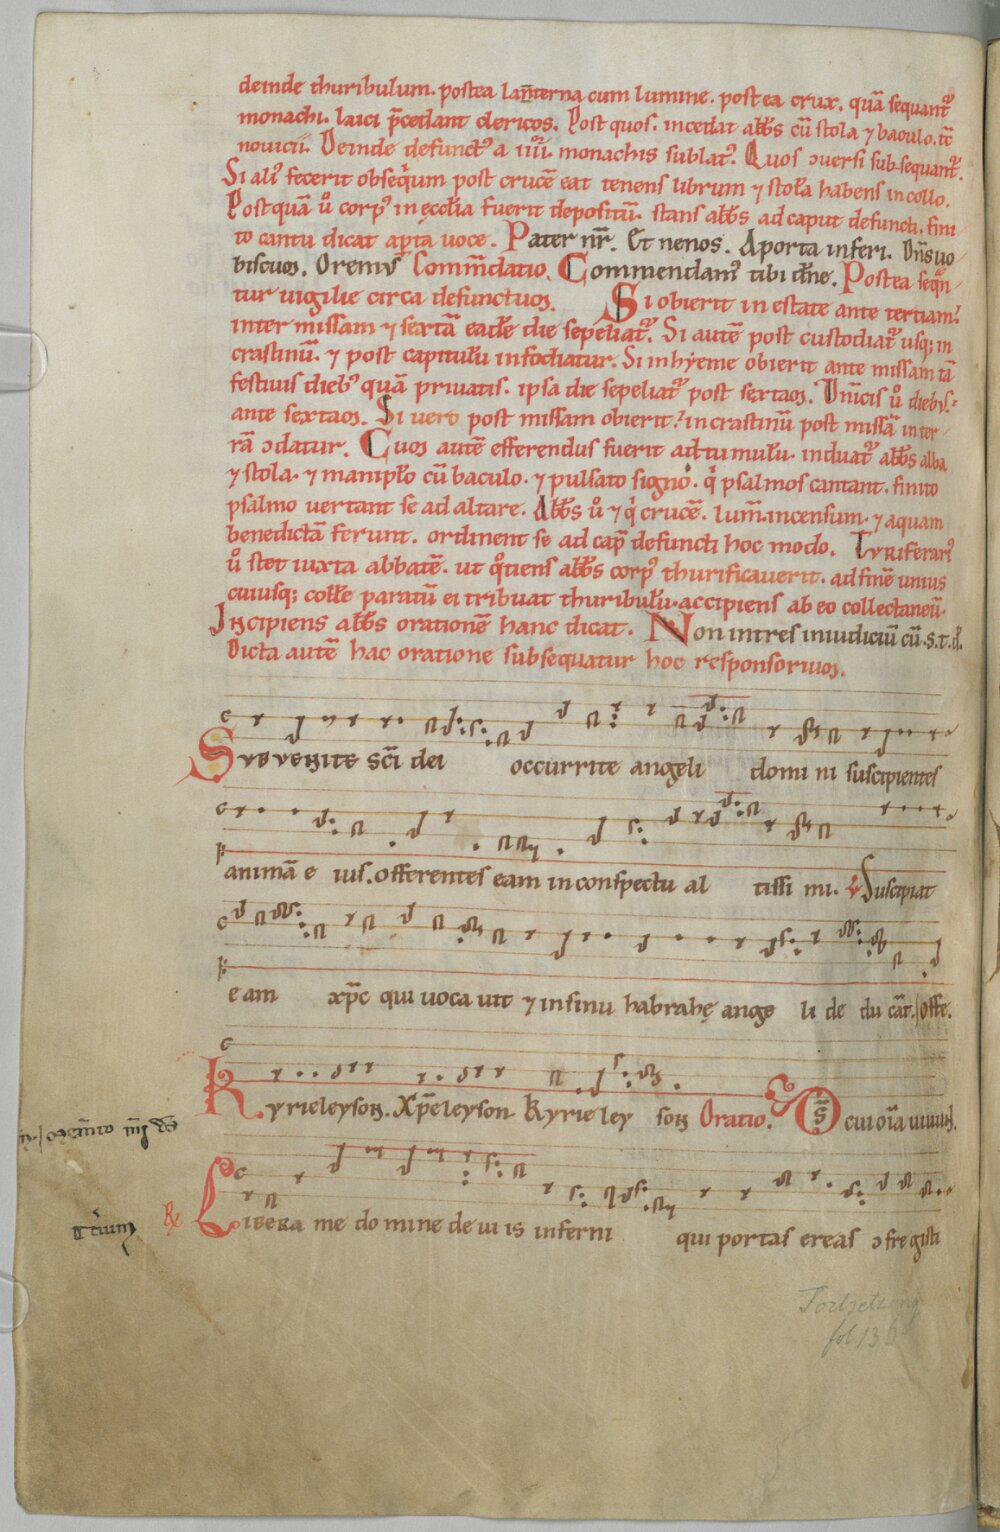 deinde thuribulum. postea lanterna cum lumine. postea crux. quā sequant᷒
monachi. laici p̄cedant clericos. Post quos. incedat abb̄s cū stola ⁊ baculo. tc̄
nouicii. Deinde defunct᷒ a iiii. monachis sublat᷒. Quos ↄuersi subsequant᷒.
Si ali᷒ fecerit obseq̍um post crucē eat tenens librum ⁊ stola habens in collo.
Postquā u̾ corp᷒ in ęcclīa fuerit depositū. stans abb̄s ad caput defuncti. fini
to cantu dicat ap̄ta uoce. Pater nr̄. Et nenos. Aporta inferi. Dn̄s uo
biscum. Oremus Comm̄datio. Commendam᷒ tibi dn̄e. Postea seqn̄
tur uigilie circa defunctum. Si obierit in estate ante tertiam
inter missam ⁊ sextā eadē die sepeliat᷒. Si autē post custodiat᷒ usq; in
crastinū. ⁊ post capitulū infodiatur. Si in hyeme obierit ante missam tā
festiuis dieb᷒ quā priuatis. ipsa die sepeliat᷒ post sextam. Dn̄icis u̾ dieb᷒
ante sextam. Si uero post missam obierit. in crastinū post missā inter
rā ↄdatur. Cum autē efferendus fuerit ad tumulū. induat᷒ abb̄s alba
⁊ stola. ⁊ manipło cū baculo. ⁊ pulsato signo. q̍ psalmos cantant. finito
psalmo uertant se ad altare. Abb̄s u̾ ⁊ q̍ crucē. lum̄. incensum. ⁊ aquam
benedictā ferunt. ordinent se ad cap̄ defuncti hoc modo. Turiferari᷒
u̾ stet iuxta abbatē. ut q̊tiens abb̄s corp᷒ thurificauerit. ad finē unius
cuiusq; coll̄e paratū ei tribuat thuribulū. accipiens ab eo collectaneū.
Incipiens abb̄s orationē hanc dicat. Non intres in iudiciū cū. s. t. d̄.
Dicta autē hac oratione subsequatur hoc responsorium.
Subuenite sc̄i dei occurrite angeli domi ni suscipientes
animā e ius. offerentes eam in conspectu al tissi mi. ℣ Suscipiat
eam xp̄c qui uoca uit ⁊ in sinu habrahę ange li de du cāt. Offe.
Kyrieleyson. Xp̄eleyson. Kyrie ley son Oratio. Ds̄ cui om̄ia uiuunt.
℟ Libera me do mine de ui is inferni qui portas ereas ↄfre gisti
Fortsetzung